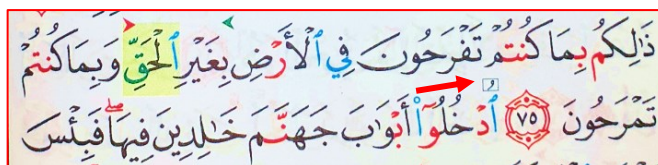 ذَٰلِكُم بِمَا كُنتُمْ تَفْرَحُونَ فِي ٱلْأَرْضِ بِغَيْرِ ٱلْحَقِّ وَبِمَا كُنتُمْ
تَمْرَحُونَ ٧٥ ٱدْخُلُوٓا۟ أَبْوَٰبَ جَهَنَّمَ خَٰلِدِينَ فِيهَا ۖ فَبِئْسَ